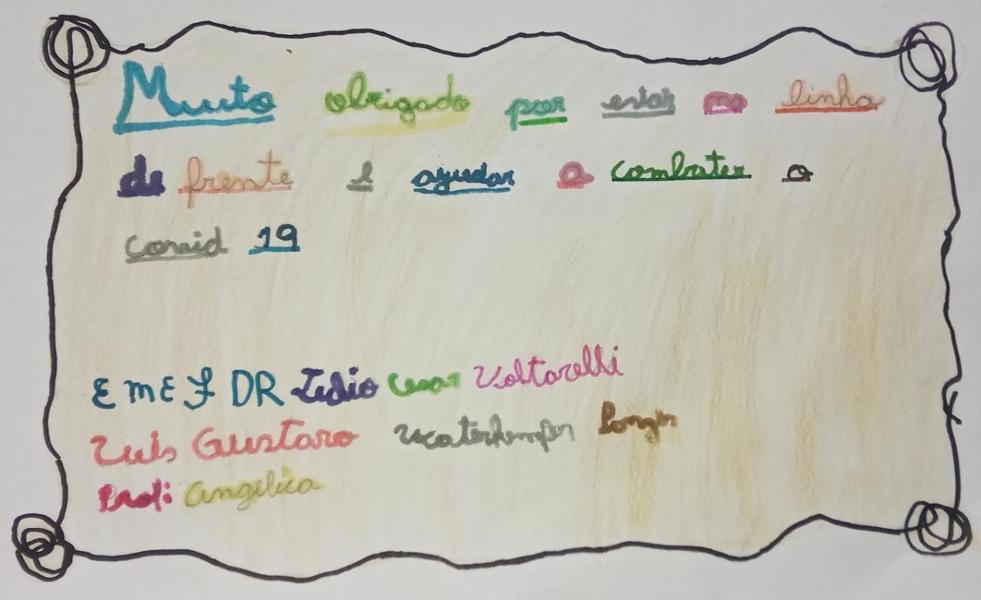 Muito obrigado por estar na linha
de frente e ajudar a combater o
Covid 19
E M E F DR Tulio Cesar Voltarelli
Luis Gustavo
Prof: Angelica